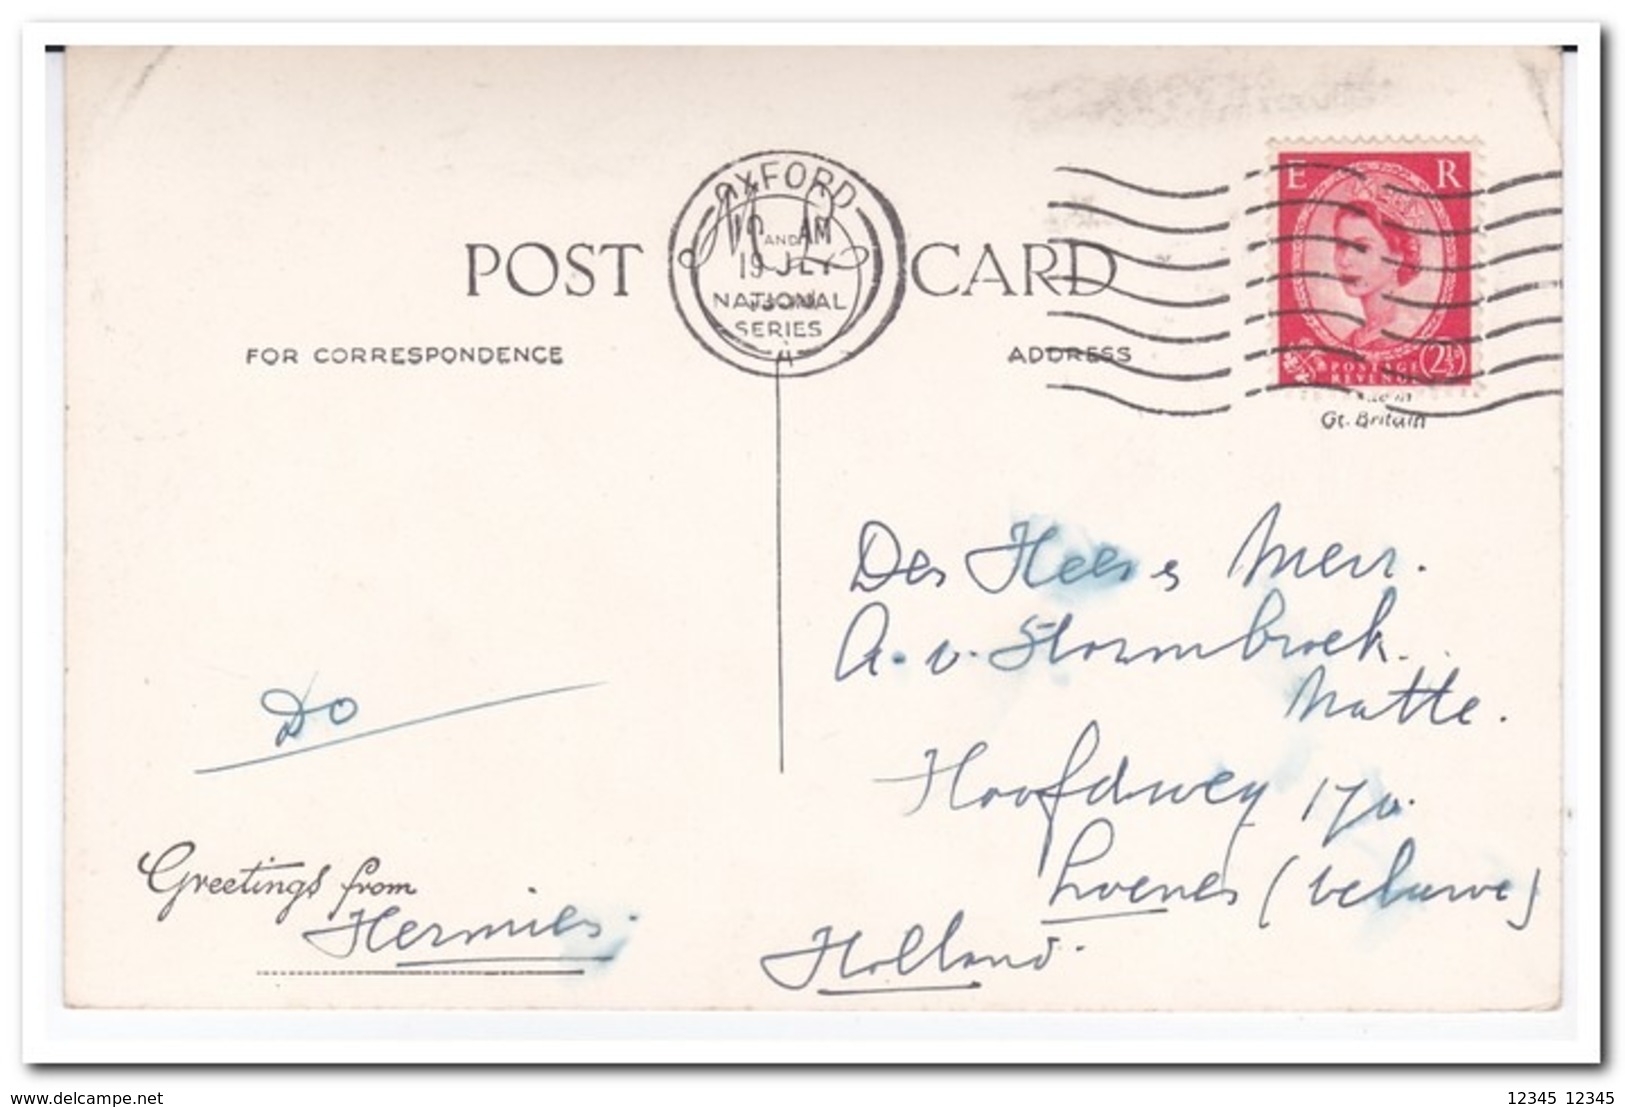 POST CARD
OXFORD
AM
AND
19 JLY
NATIONAL
SERIES
FOR CORRESPONDENCE
ADDRESS
E R
POSTAGE
REVENUE
2½
Gt. Britain
Den Heer & Mevr.
A. v. Stormbroek.
Matte.
Do
Hoofdweg 170.
Loenen (Veluwe)
Greetings from
Hermies.
Holland.
www.delcampe.net
12345 12345